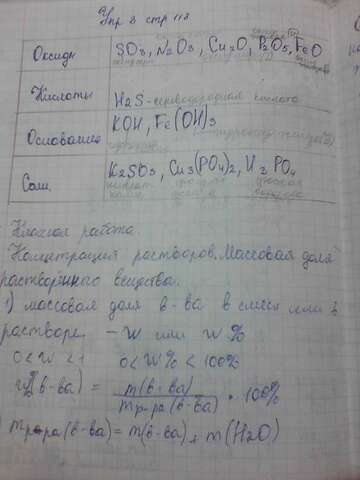 Упр 2 стр 113
Оксиды SO3, N2O3, Cu2O, P2O5, FeO
Кислоты H2S - сероводородная кислота
Основания KOH, Fe(OH)3
Соли K2SO3, Cu3(PO4)2, H3PO4
Классная работа
Концентрация растворов. Массовая доля
растворённого вещества.
1) массовая доля в-ва в смеси или в
растворе - w или w%
0 < w < 1 0 < w% < 100%
w(в-ва) = m(в-ва) / mр-ра(в-ва) · 100%
mр-ра(в-ва) = m(в-ва) + m(H2O)